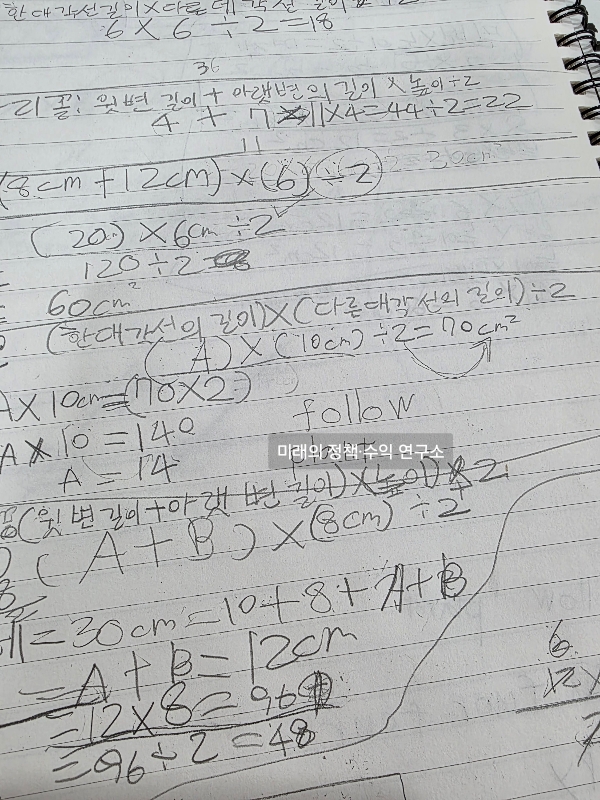 한 대각선 길이×다른 대각선 길이
6 × 6 ÷ 2 = 18
36
리꼴: 윗변 길이 + 아랫변의 길이 × 높이 ÷ 2
4 + 7 11×4=44÷2=22
11
(8cm + 12cm) × (6) ÷ 2
(20) × 6cm ÷ 2
120 ÷ 2
= 60cm²
(한 대각선의 길이)×(다른 대각선의 길이)÷2
(A) × (10cm) ÷ 2 = 70cm²
A × 10cm = (70×2)
A × 10 = 140
follow
A = 14
미래의 정책·수익 연구소
(윗변 길이+아랫변 길이)×(높이) 2
(A + B) × (8cm) ÷ 2
= 30cm = 10 + 8 + A + B
= A + B = 12cm
= 12 × 8 = 96
= 96 ÷ 2 = 48
6
12 ×